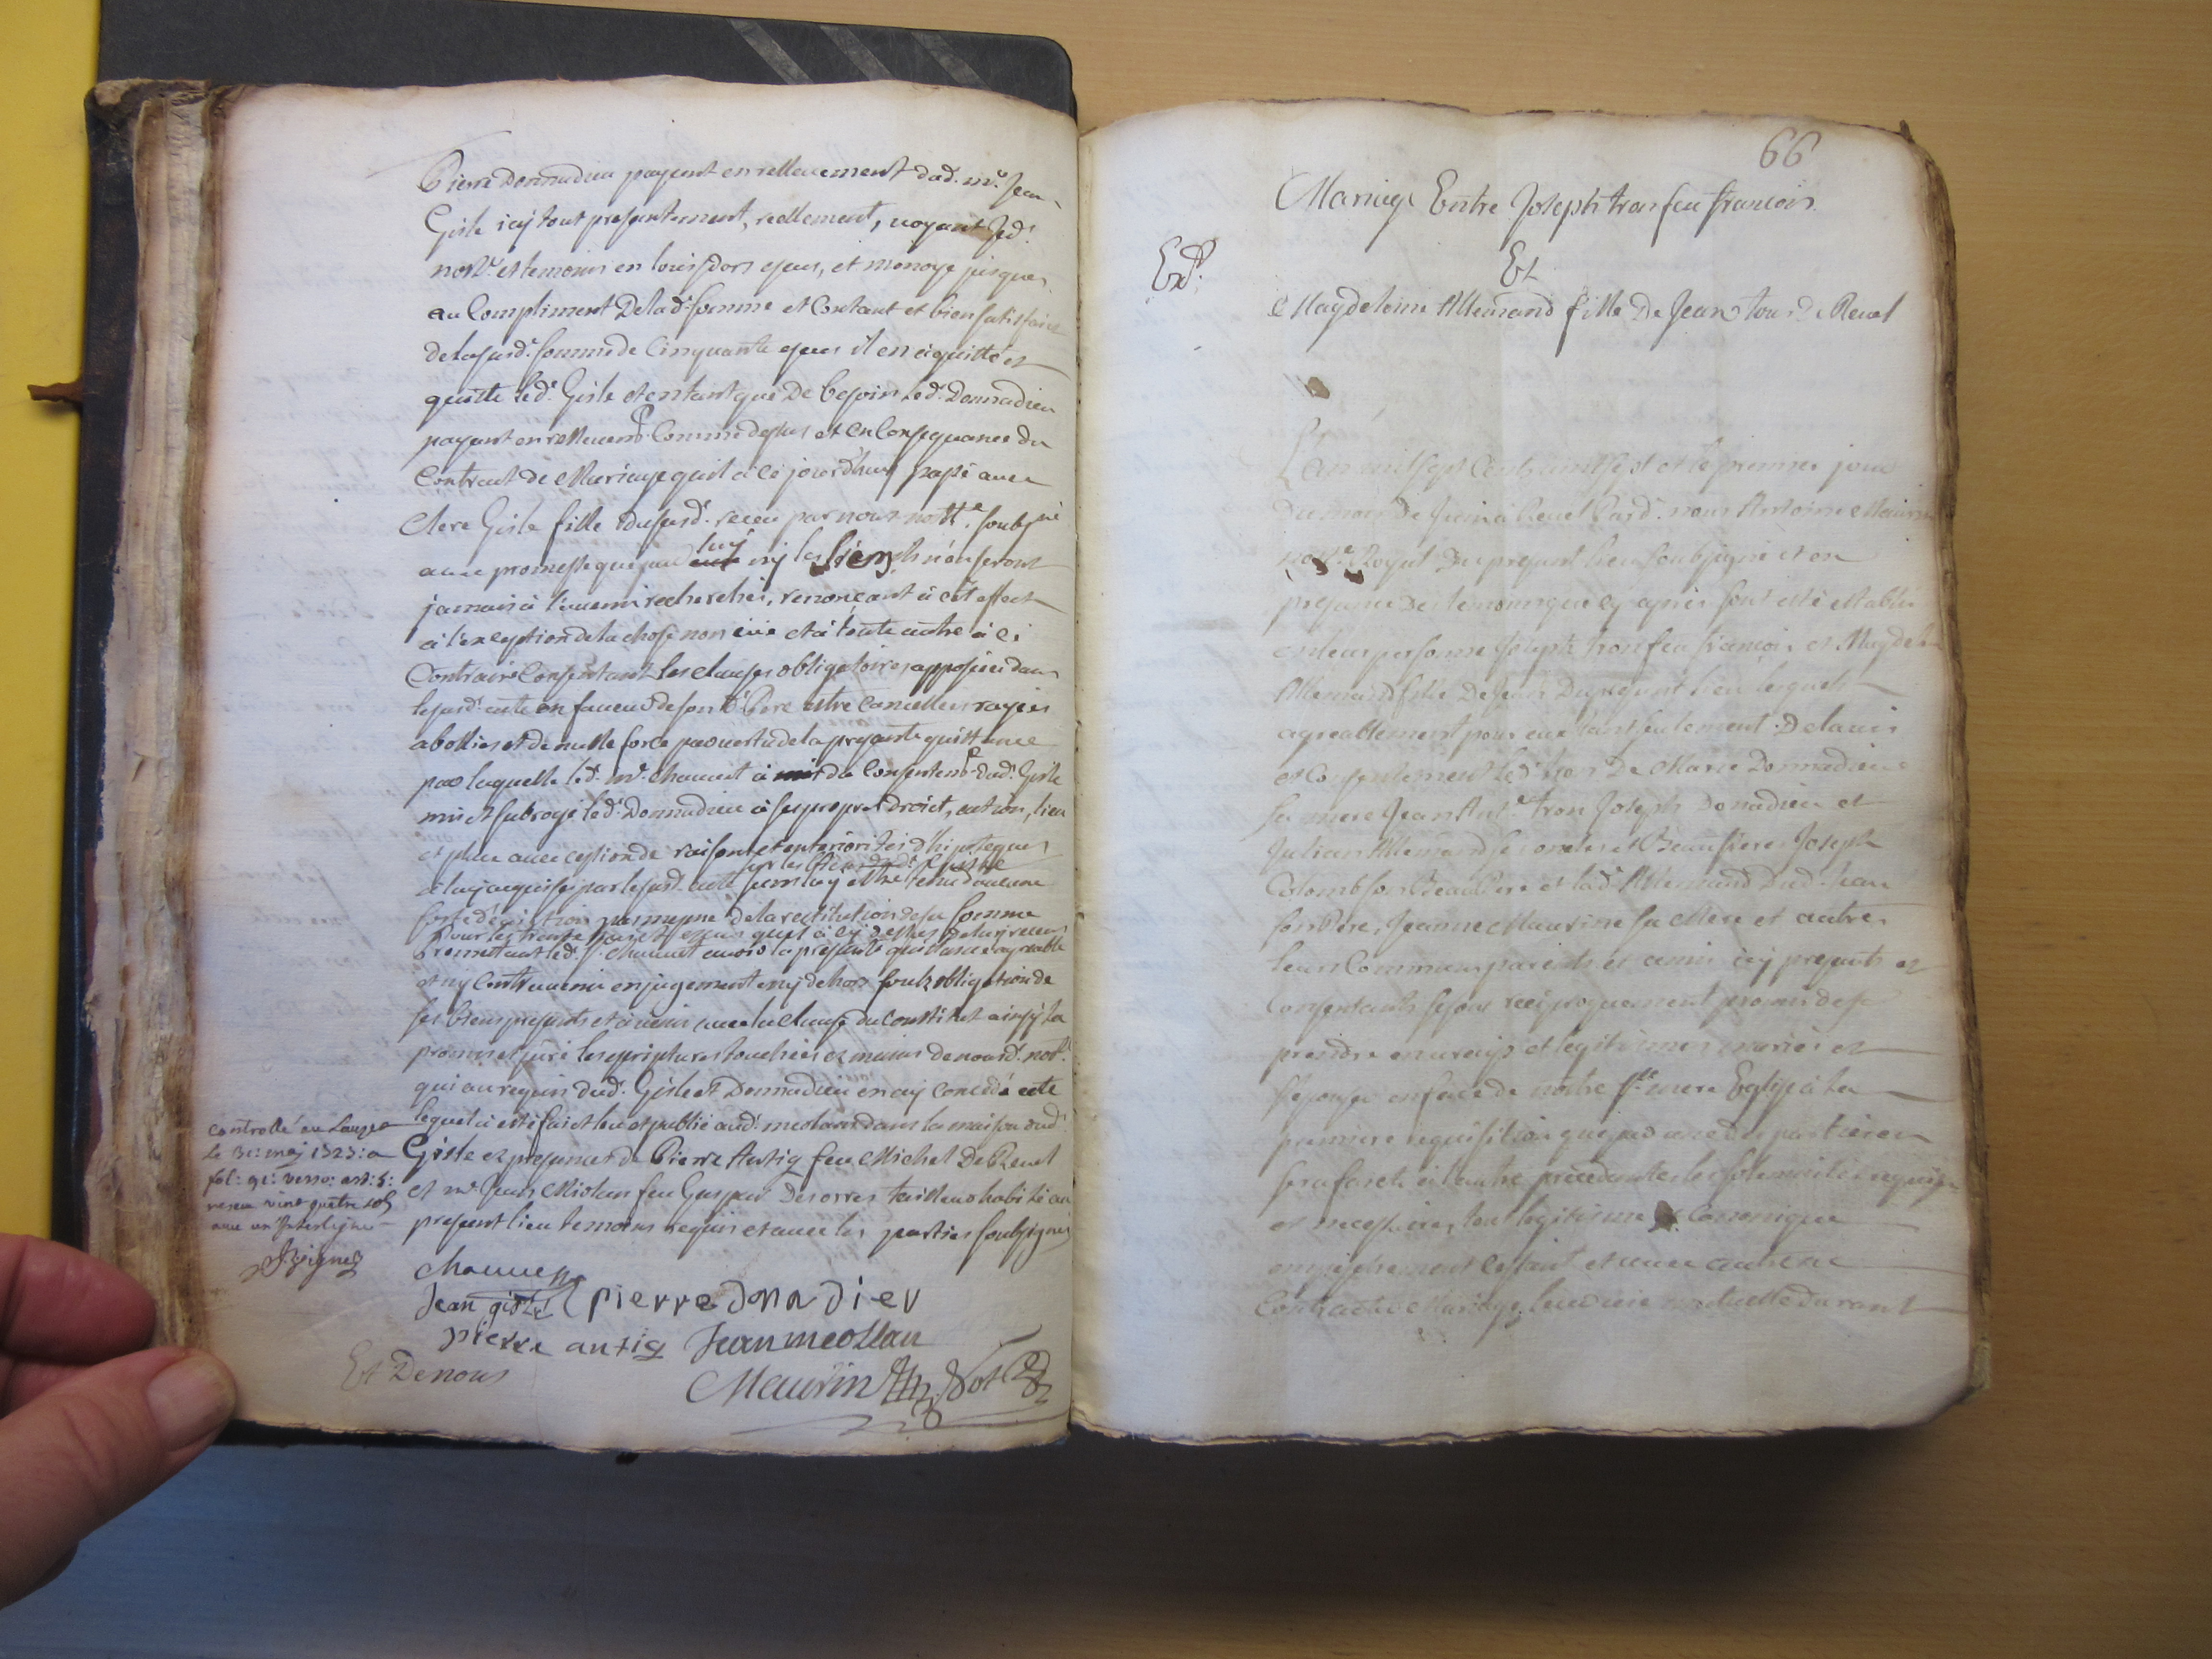 Pierre Donnadieu payent en rellevement dud. mr. Jean
Gisle icy tout presentement, reellement, voyant Jed.
notre. et temoins en louis d'ors escus, et monoye jusques
au Compliment De lad. somme et Contant et bien satisfaict
de lasusd. somme de Cinquante escus il en a quitté et
quitte led. Gisle et en tant que De besoin led. Donnadieu
payant en rellevemt. Comme dessus et en Consequance du
Contract de Mariage quil a ce jourd'huy passé avec
Clere Gisle fille dususd. receu par nous nottre. soubsne
avec promesse que par luy ny les siens ils n'en seront
jamais a l'avenir recherchés, renonçant a cet effect
a l'exception de la chose non eüe et a toute autre a ce
Contraire Consentant les clauses obligatoires apposées dans
lesusd. acte en faveur de son Pere estre Cancellées rayées
abollies et de nulle force par vertu de la presante quittance
par laquelle led. mr. chauvet a du Consentemt. dud. Gisle
mis et subrogé led. Donnadieu a ses propres droict, action, lieu
et place avec cession de raisons et anteriorités d'hipoteques
a luy acquises par lesusd. acte sans luy estre tenu d'aucune
sorte d'eviction pas mesme de la restitution de sa somme
Promettant led. Sr. chauvet avoir la presente quittance agreable
et ny Contrevenir en jugement ny dehors soubz obligation de
ses biens presents et a venir avec la clause du constitut ainsy la
promis et juré les escriptures touchées ez mains de nousd. notre.
qui au requis dud. Gisle et Donnadieu en ay Concedé acte
lequel a esté faict leu et publié aud. meolans dans la maison dud.
Gisle ez presances de Pierre Antiq feu Michel De Revel
et mr. Jean Miolan feu Gaspar Desorres tailleur habité au
present lieu temoins requis et avec les parties soubsignés
controllé au Lauzet
Le 31: may 1727: a
fol: 91: verso: art: 5:
receu vint quatre sols
avec un Interligne
chauvet
Jean gisle pierre donadieu
pierre antiq Jean meollan
Et De nous
Maurin Notre
66
Mariage Entre Joseph tron feu francois
Exd.
Et
Magdeleine Allemand fille De Jean tous De Revel
L'an mil sept Cents vint sept et le premier jour
Du mois De Juin a Revel Pard. nous Antoine Maurin
notre. Royal Du present lieu soubsigné et en
presance Des temoins que cy apres sont esté establis
en leurs personne Joseph tron feu francois et Magdelne
Allemand fille De Jean Du present lieu lesquels
agreablement pour eux tant seulement De lavis
et Consentement led. tron De Marie Donnadieu
sa mere Jean Antne. tron Joseph Donadieu et
Julian Allemand ses oncles et Beaufreres Joseph
Colomb son Beau Pere et lad. Allemand Dud. Jean
son Pere, Jeanne Maurine sa Mere et autres
leurs Communs parents et amis icy presents et
Consentants se sont reciproquement promis de se
prendre en vrays et legitimes mariés et
s'epouser en face de nostre ste. mere Eglise a la
premiere requisition que par une des parties en
sera faicte a l'autre precedantes les solemnités requises
et necessaires, tout legitisme et Cannonique
empechement cessant et avec au
Contracté Mariage leur vie mutuelle durant